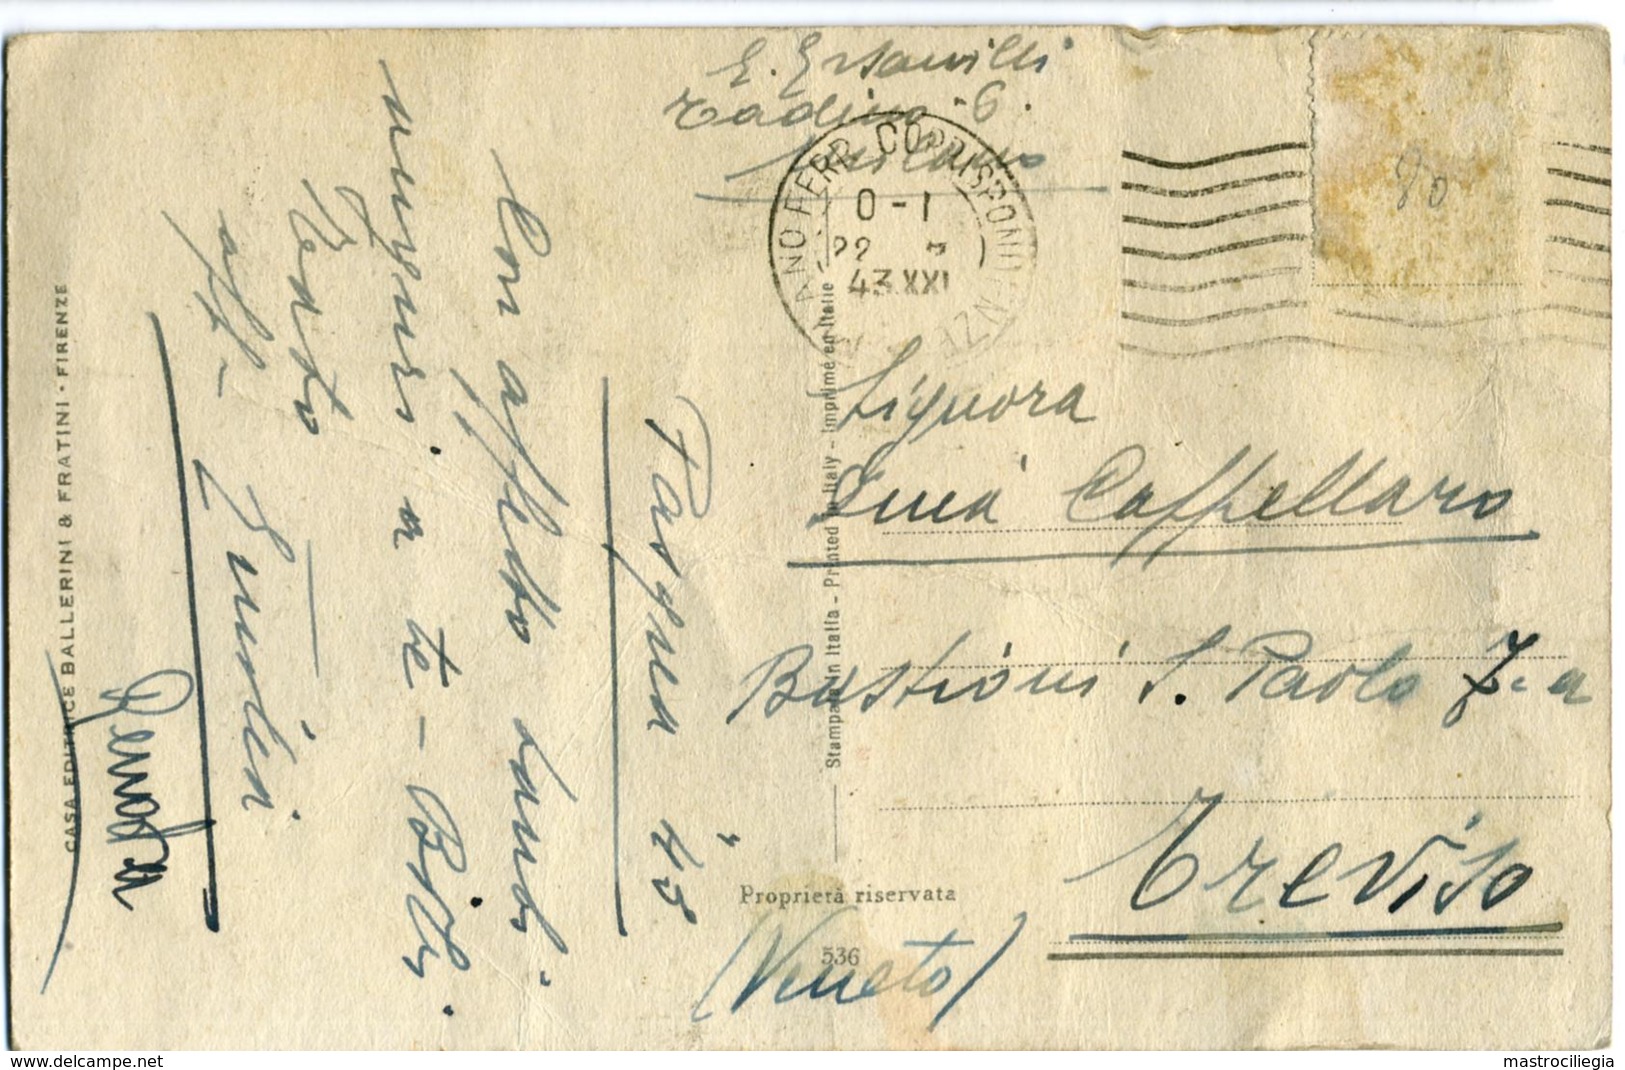 Pasqua 43
Con affetto tanti
auguri a te - Bibi
Renato
aff.
CASA EDITRICE BALLERINI & FRATINI - FIRENZE
Stampata in Italia - Printed in Italy - Imprimé en Italie
E.
Tadino 6.
Milano
ANO FERR. CORRISPOND
0-1
22 3
43 XXI
80
Signora
Cappellaro
Bastioni S. Paolo 7-a
Treviso
(Veneto)
Proprietà riservata
536
www.delcampe.net
mastrociliegia